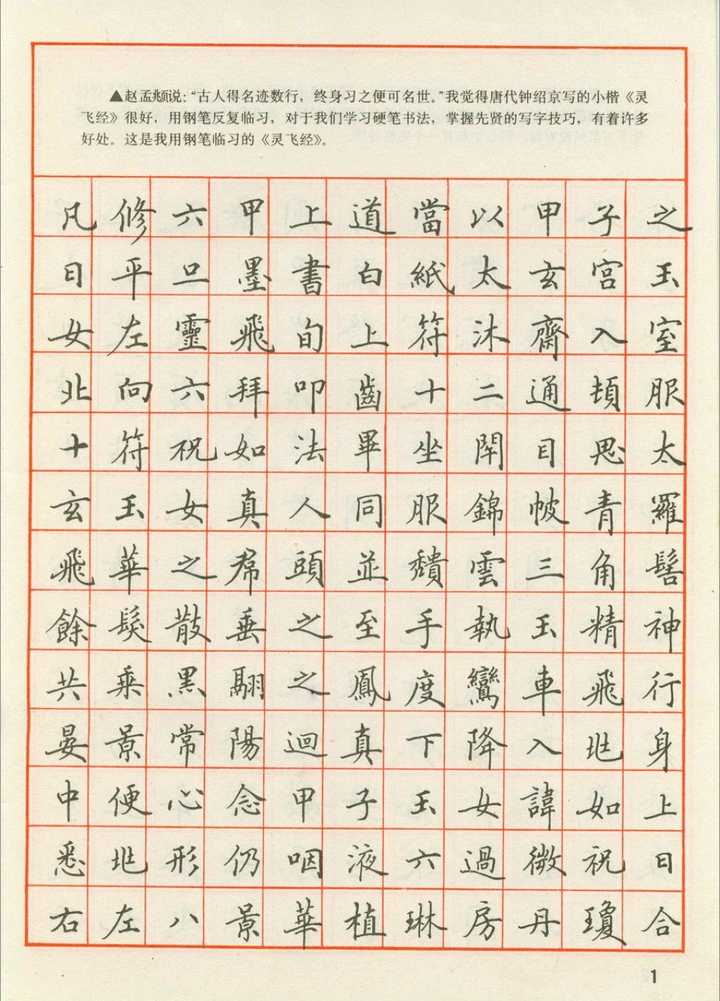 ▲赵孟頫说：“古人得名迹数行，终身习之便可名世。”我觉得唐代钟绍京写的小楷《灵
飞经》很好，用钢笔反复临习，对于我们学习硬笔书法，掌握先贤的写字技巧，有着许多
好处。这是我用钢笔临习的《灵飞经》。
凡修六甲上道當以甲子之
日平旦墨書白紙太玄宮玉
女左靈飛旬上符沐齋入室
北向六拜叩齒十二通頓服
十符祝如法畢坐閇目思太
玄玉女真人同服錦帔青羅
飛華之帬頭並穨雲三角髻
餘髮散垂之至手執玉精神
共乘黑翮之鳳度鸞車飛行
晏景常陽迴真下降入兆身
中便心念甲子玉女諱如上
悉兆形仍咽液六過微祝日
右左八景華植琳房丹瓊合
1